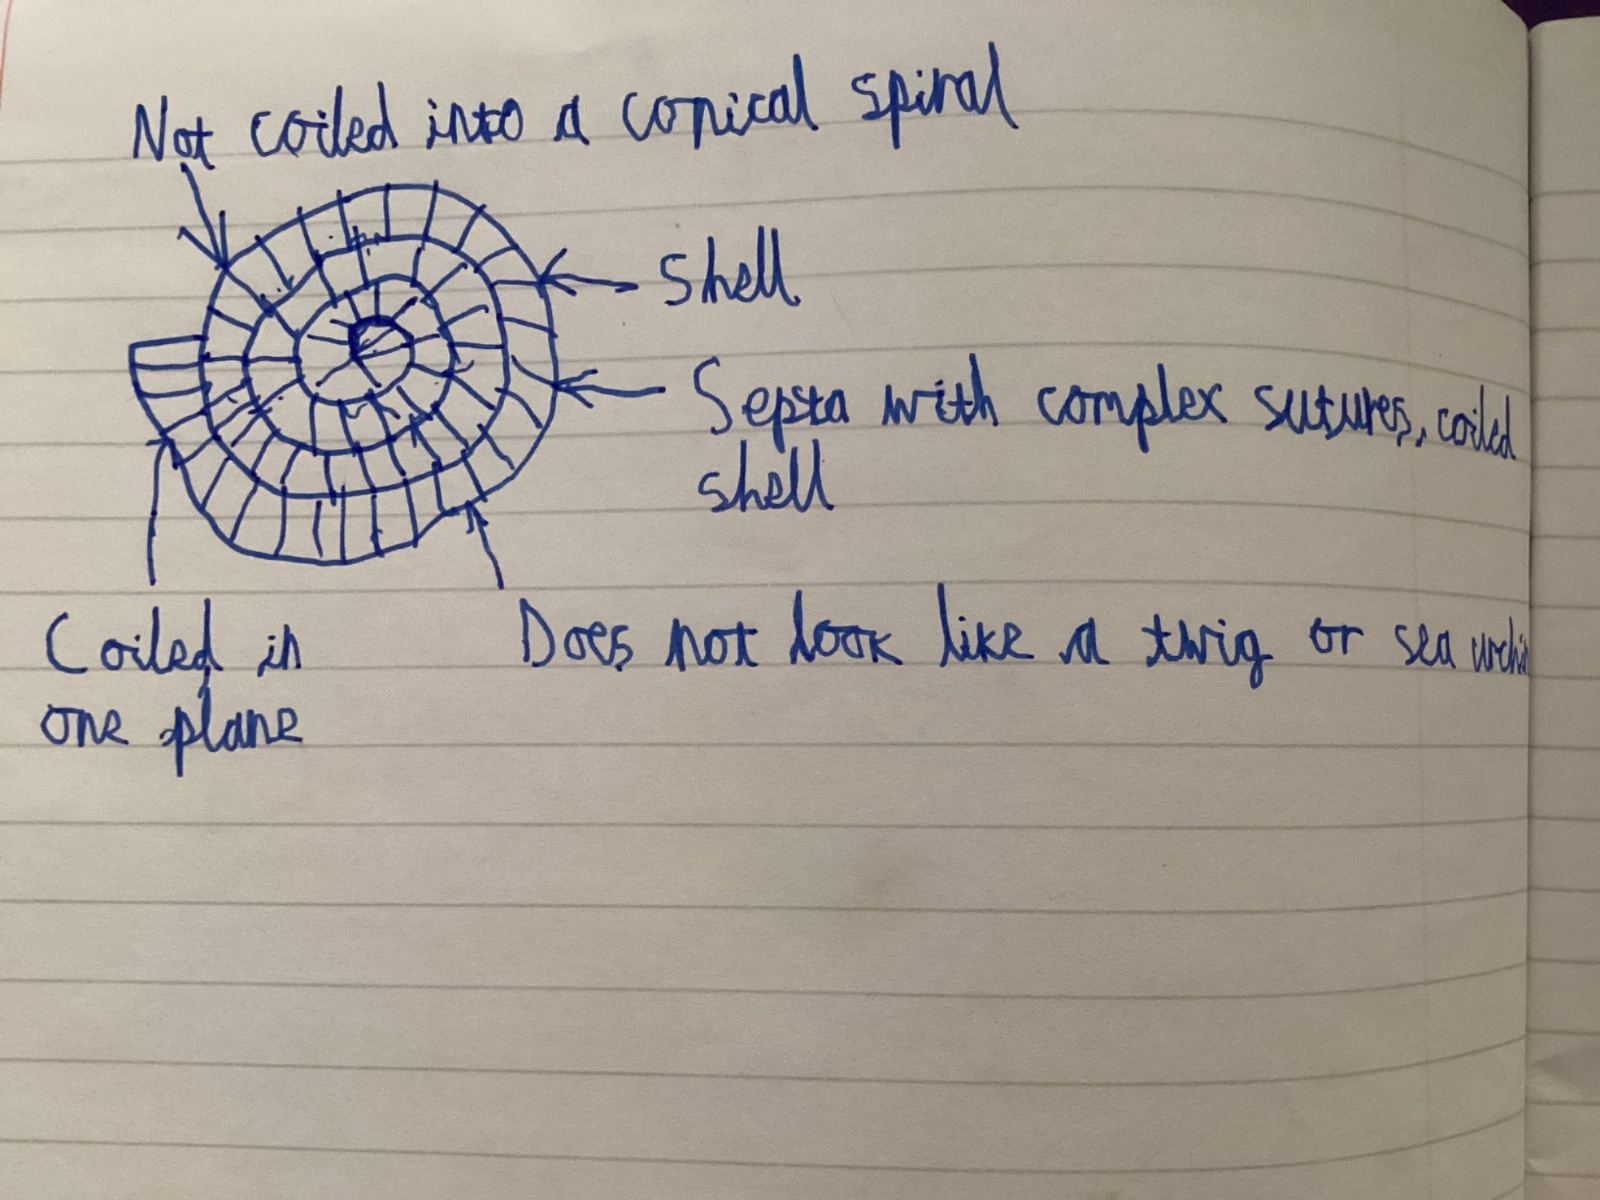 Not coiled into a conical spiral
Shell
Septa with complex sutures, coiled
shell
Coiled in
one plane
Does not look like a twig or sea urchin